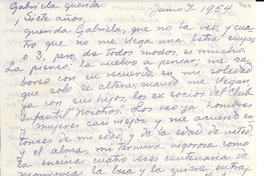 Gabriela querida:
Junio 7. 1954
¡Siete años,
querida Gabriela, que no la veo, y cua
tro que no me llega una letra suya
o 3, pero, de todos modos, es mucho.
La pienso, la vuelvo a pensar; me sa
boreo con su recuerdo en mi soledad
que sólo se altera, cuando me visitan
ya con sus hijos, los ex socios del Club
Infantil Nosotros. Los veo ya hombres
y mujeres casi viejos y me acuerdo en
tonces de mi edad, y de la edad de usted
y el alma, mi ternura vigorosa como
la encina cuatro veces centenaria de
la besa y la quisera